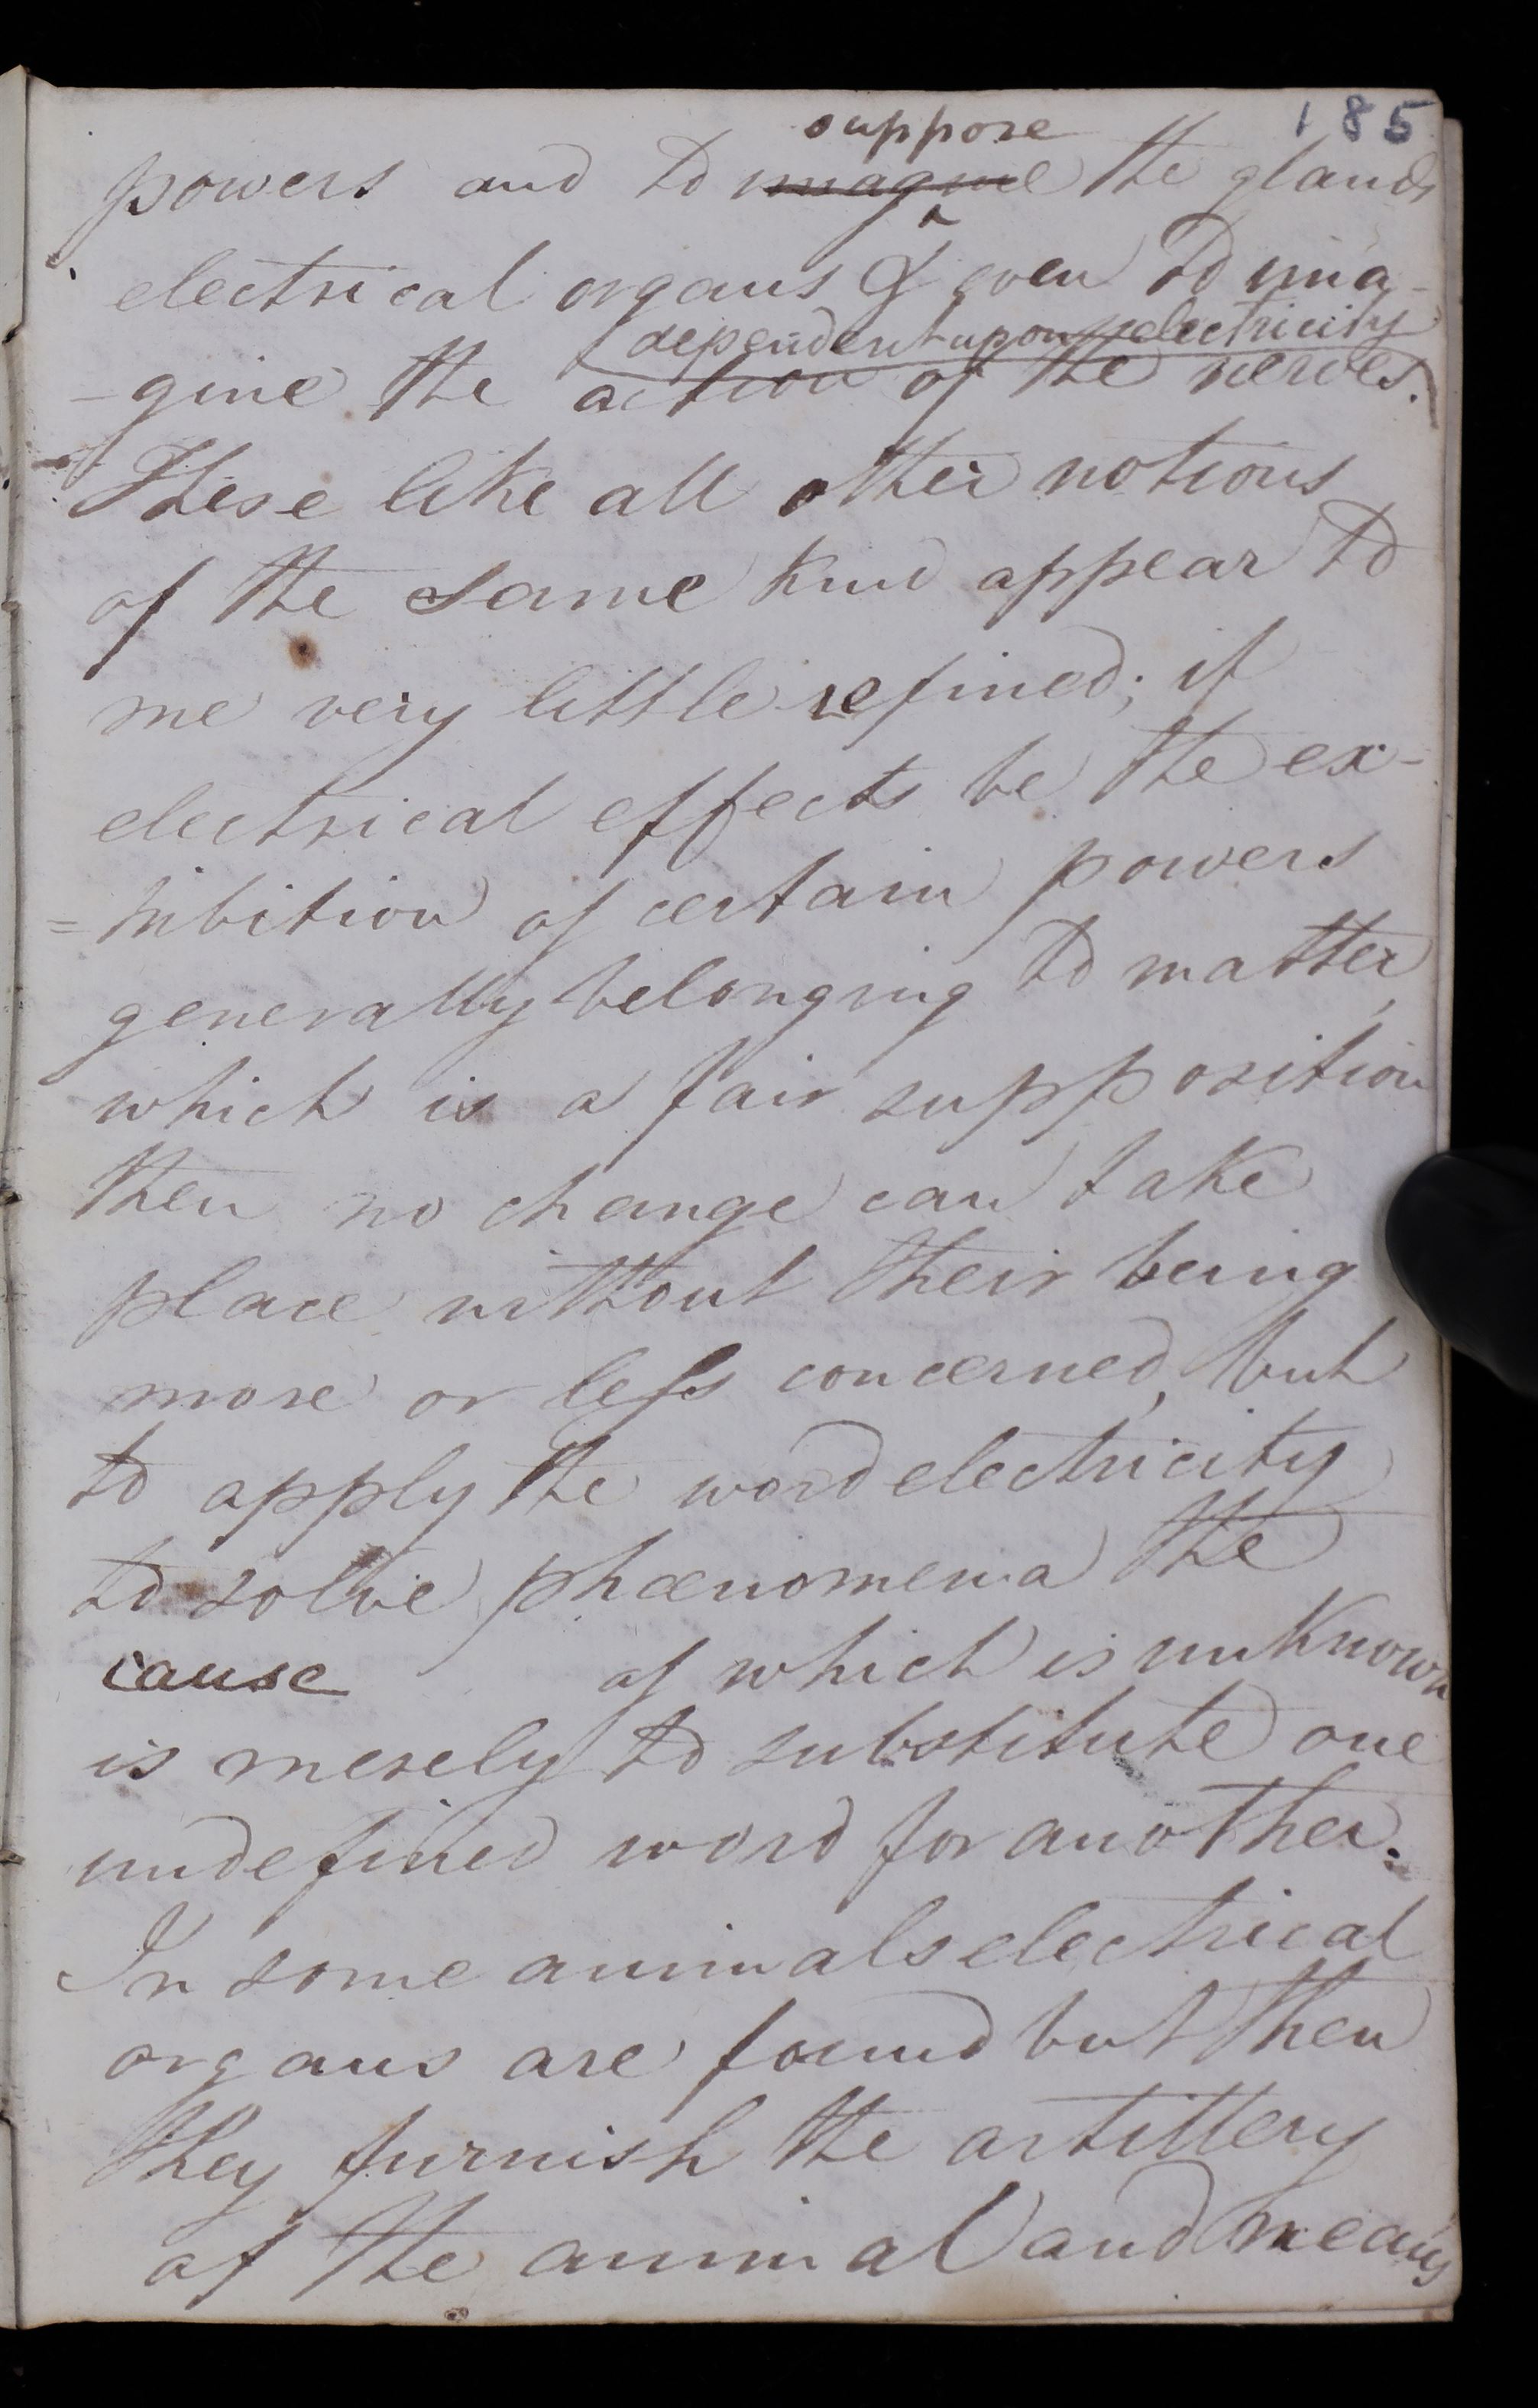 185
suppose
powers and to imagine the glands
electrical organs & even to ima-
dependent upon electricity
-gine the action of the nerves.
These like all other notions
of the same kind appear to
me very little refined; if
electrical effects be the ex-
=hibition of certain powers
generally belonging to matter,
which is a fair supposition
then no change can take
place without their being
more or less concerned, but
to apply the word electricity
to solve phænomena the
cause of which is unknown
is merely to substitute one
undefined word for another.
In some animals electrical
organs are found but then
they furnish the artillery
of the animal and means